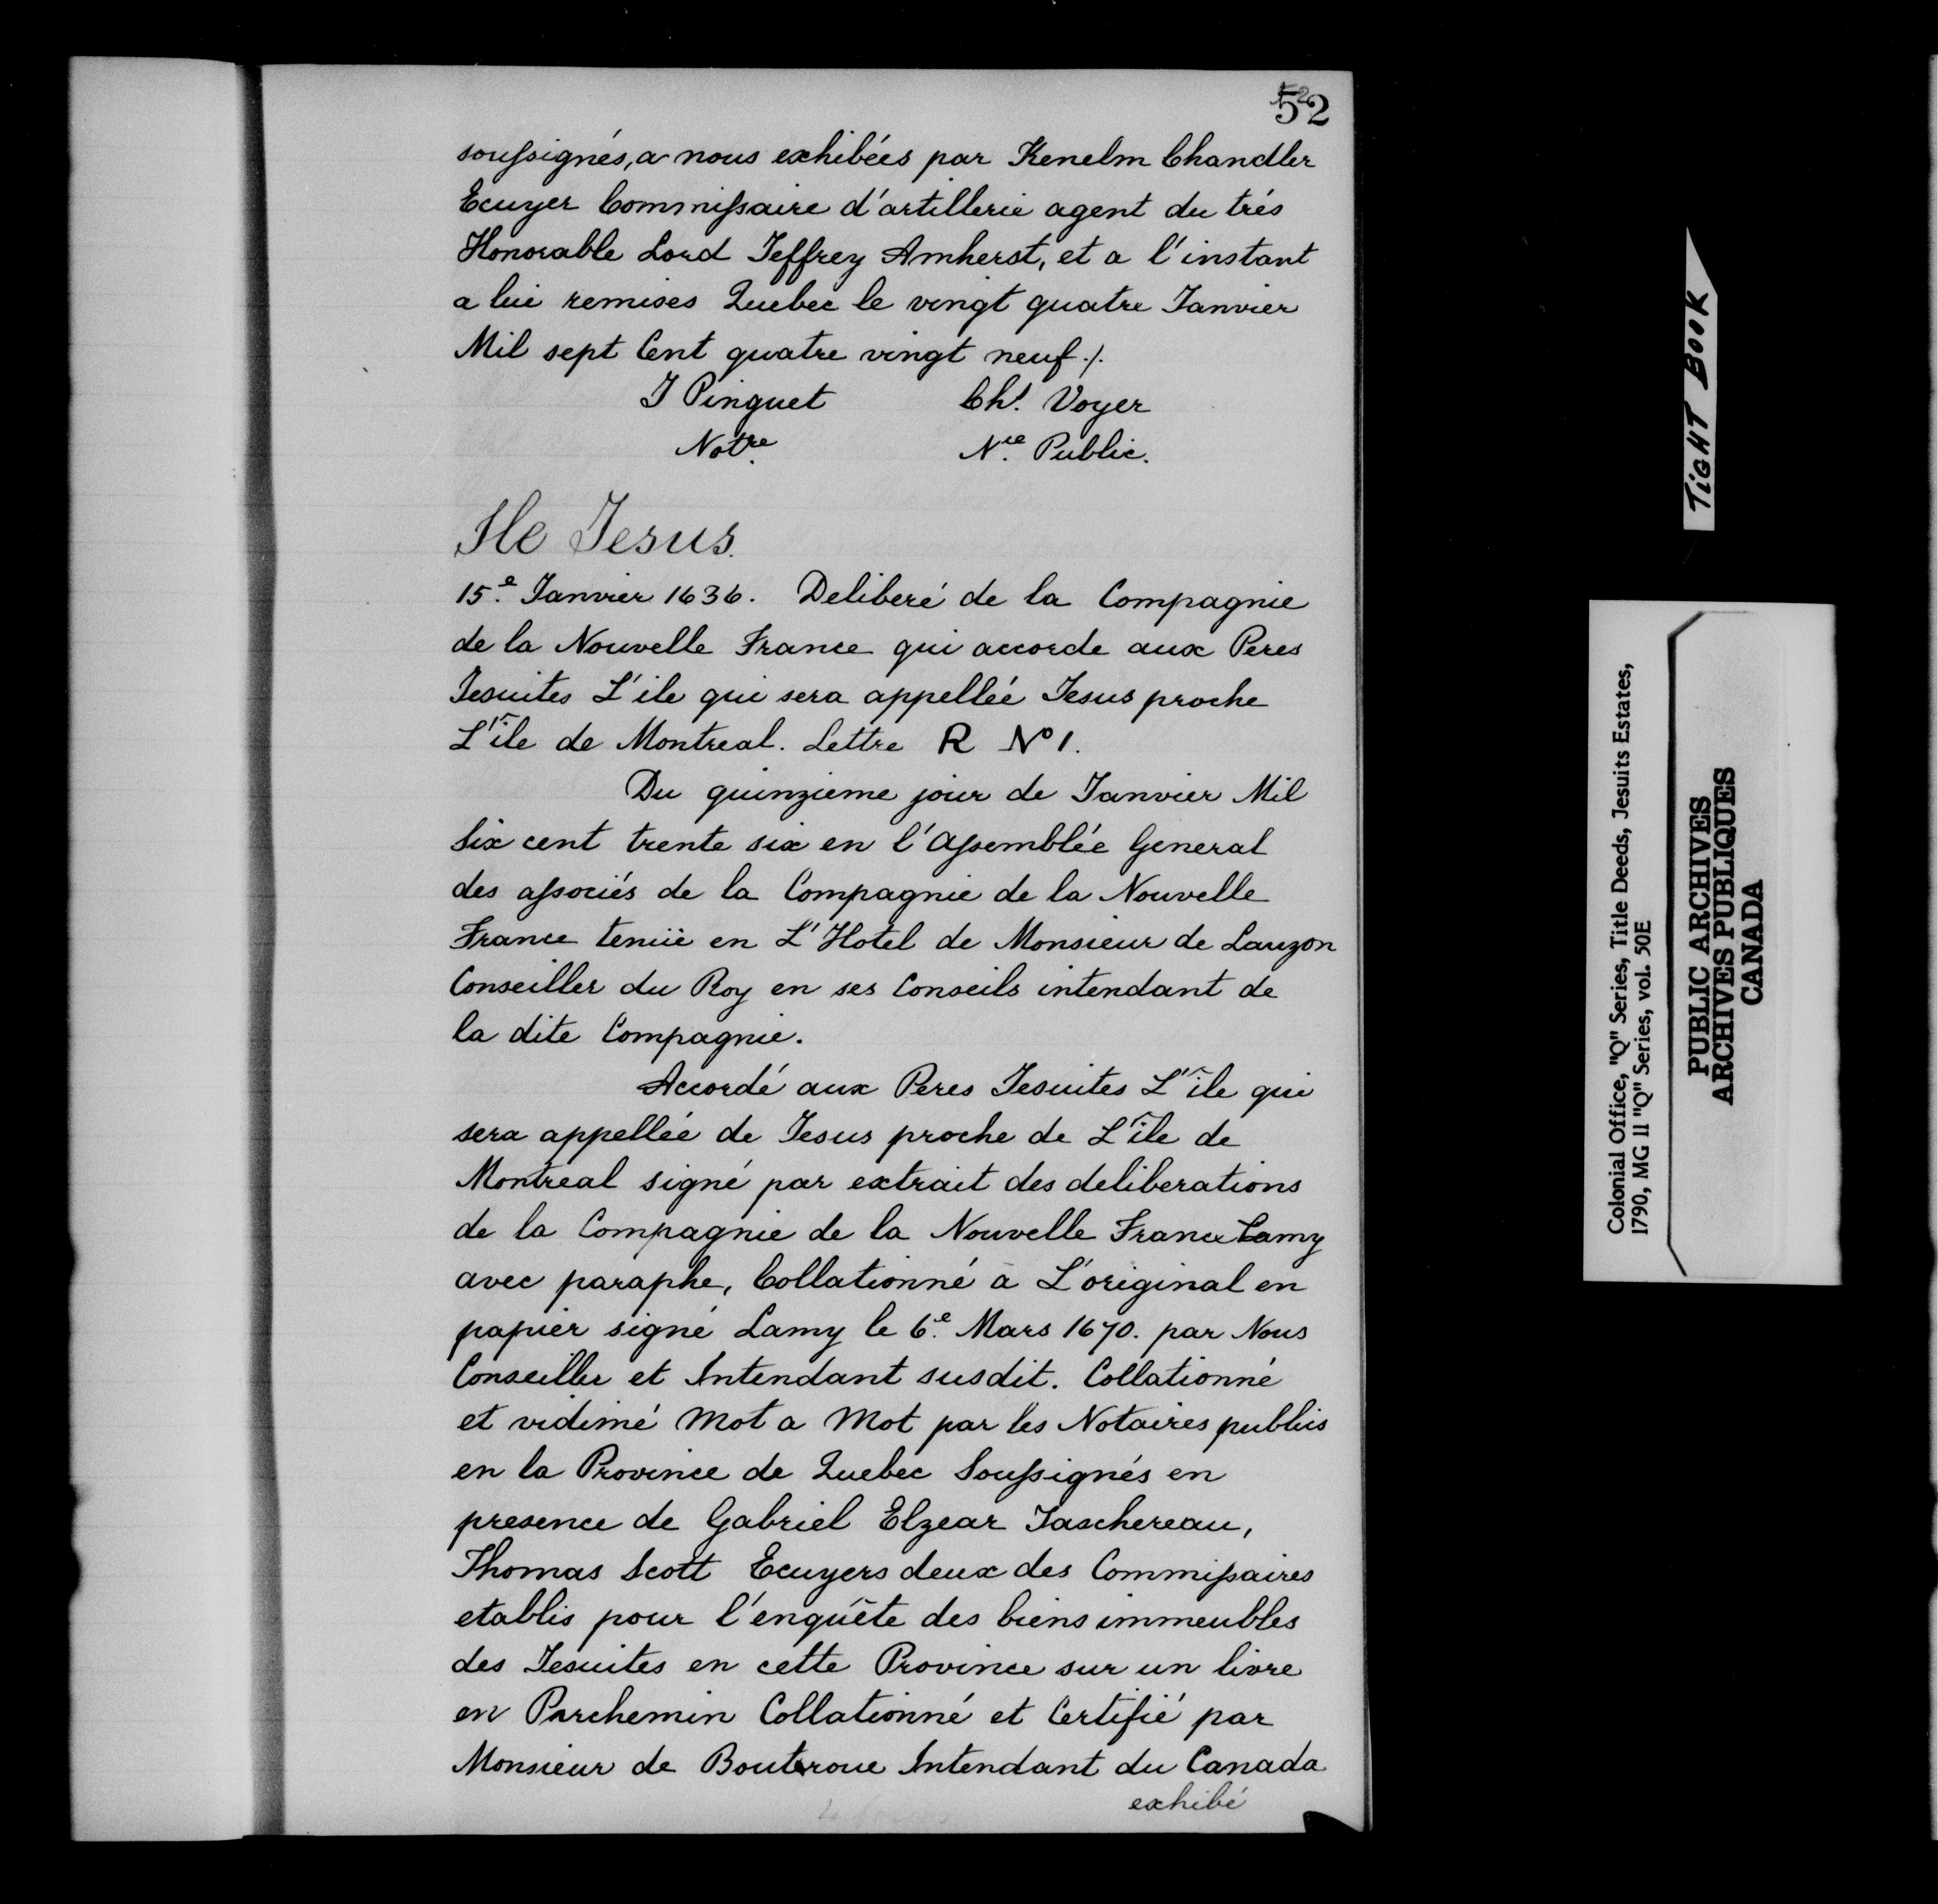 52
52
soussignés, a nous exhibées par Kenelm Chandler
Ecuyer Commissaire d'artillerie agent du trés
Honorable Lord Jeffrey Amherst, et a l'instant
a lui remises Quebec le vingt quatre Janvier
Mil sept Cent quatre vingt neuf ./.
J Pinguet Chs. Voyer
Notre. Nre. Public.
Ile Jesus.
15.e Janvier 1636. Deliberé de la Compagnie
de la Nouvelle France qui accorde aux Peres
Jesuites L'ile qui sera appellée Jesus proche
L'île de Montreal. Lettre R No 1.
Du quinzieme jour de Janvier Mil
Six cent trente six en l'assemblée General
des associés de la Compagnie de la Nouvelle
France tenüe en L'Hotel de Monsieur de Lauzon
Conseiller du Roy en ses Conseils intendant de
la dite Compagnie.
Accordé aux Peres Jesuites L'île qui
sera appellée de Jesus proche de L'île de
Montreal signé par extrait des deliberations
de la Compagnie de la Nouvelle France Lamy
avec paraphe, Collationné a L'original en
papier signé Lamy le 6.e Mars 1670. par Nous
Conseiller et Intendant susdit. Collationné
et vidimé Mot a Mot par les Notaires publics
en la Province de Quebec Soussignés en
presence de Gabriel Elzear Taschereau,
Thomas Scott Ecuyers deux des Commissaires
etablis pour l'enquête des biens immeubles
des Jesuites en cette Province sur un livre
en Parchemin Collationné et Certifié par
Monsieur de Bouteroue Intendant du Canada
exhibé
TIGHT BOOK
Colonial Office, "Q" Series, Title Deeds, Jesuits Estates,
1790, MG 11 "Q" Series, vol. 50E
PUBLIC ARCHIVES
ARCHIVES PUBLIQUES
CANADA